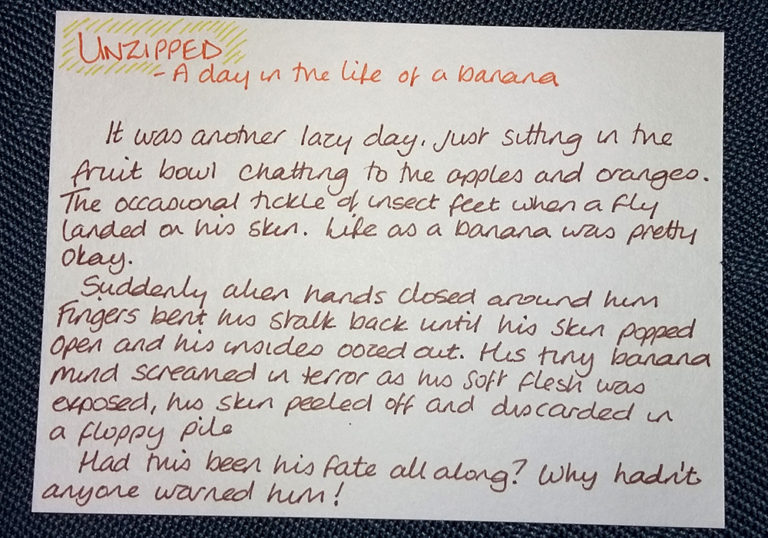 UNZIPPED
- A day in the life of a banana
It was another lazy day, just sitting in the
fruit bowl chatting to the apples and oranges.
The occasional tickle of insect feet when a fly
landed on his skin. Life as a banana was pretty
okay.
Suddenly alien hands closed around him
Fingers bent his stalk back until his skin popped
open and his insides oozed out. His tiny banana
mind screamed in terror as his soft flesh was
exposed, his skin peeled off and discarded in
a floppy pile
Had this been his fate all along? Why hadn't
anyone warned him!